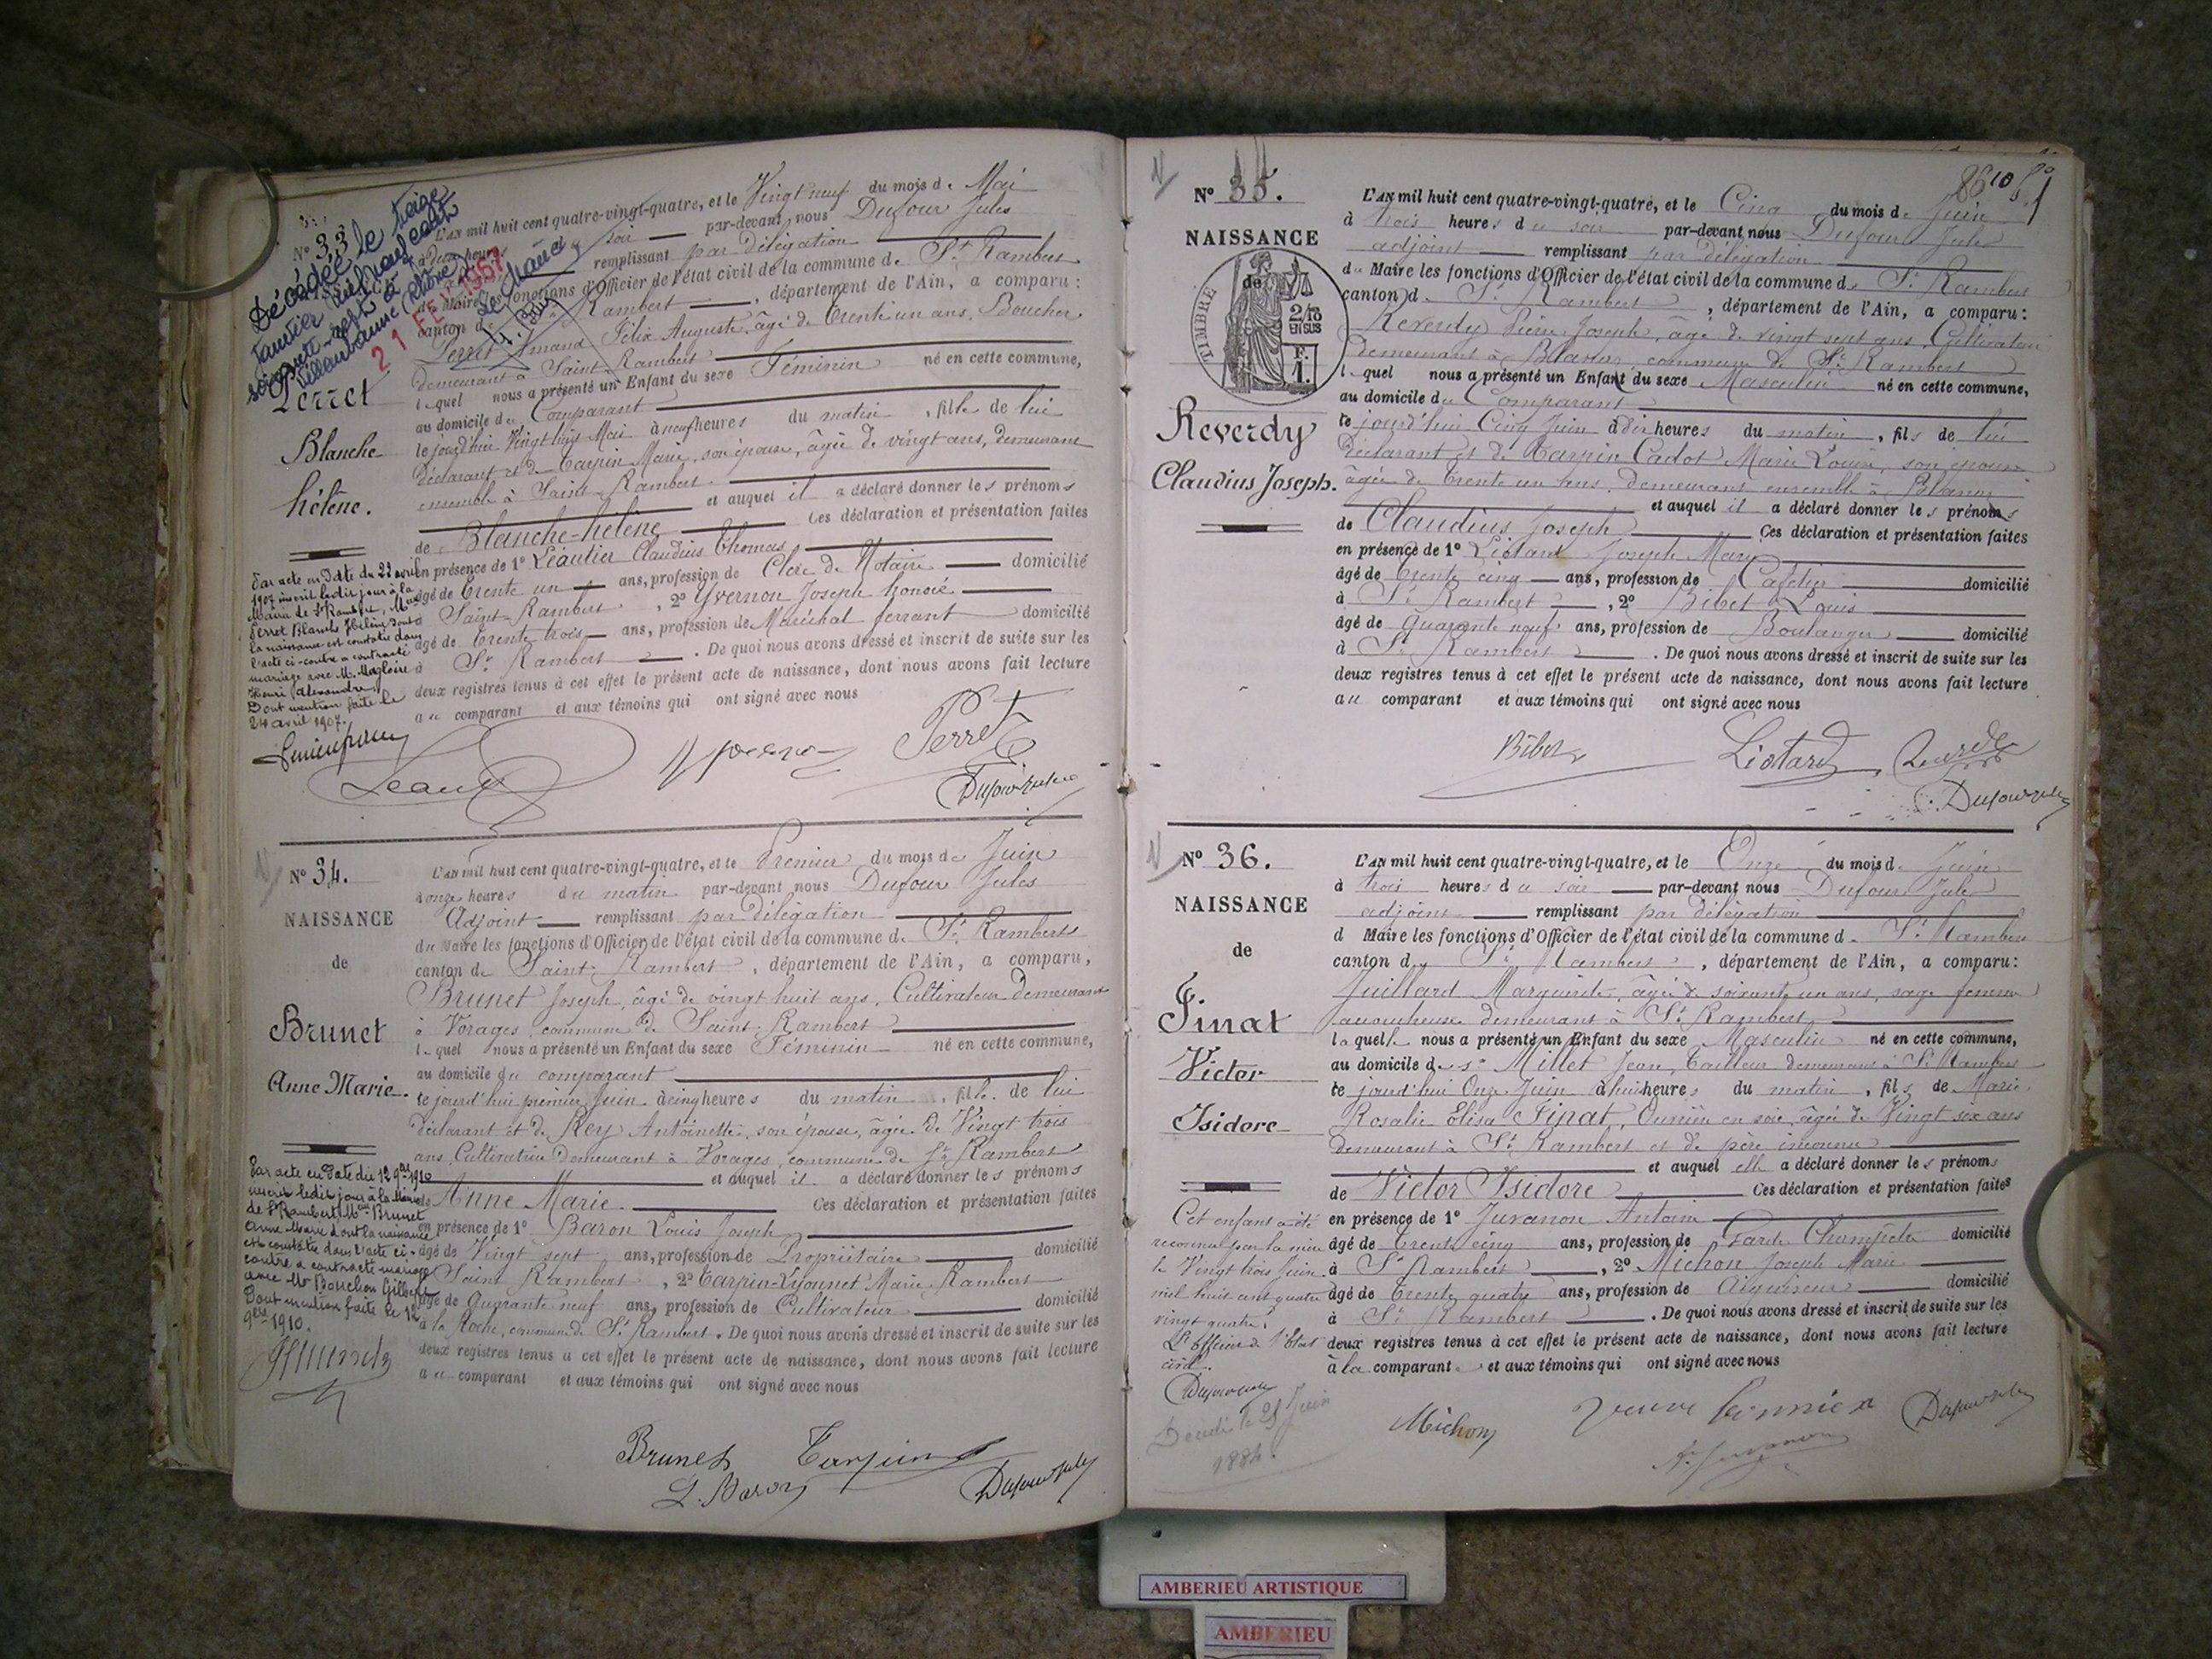 Décédée le treize
Janvier mil neuf cent
soixante-sept à
Villeurbanne (Rhône)
21 FEV 1967
N° 33
Perret
Blanche
hélène.
L'AN mil huit cent quatre-vingt-quatre, et le Vingt neuf du mois de Mai
à deux heures du soir par-devant nous Dufour Jules
remplissant par délégation
du Maire les fonctions d'Officier de l'état civil de la commune de St Rambert
canton de St Rambert, département de l'Ain, a comparu:
Perret Amand Félix Auguste, âgé de trente un ans, Boucher
demeurant à Saint-Rambert
lequel nous a présenté un Enfant du sexe Féminin né en cette commune,
au domicile du Comparant
le jourd'hui Vingt neuf Mai à neuf heures du matin, fille de lui
déclarant et de Tarpin Marie, son épouse, âgée de vingt ans, demeurant
ensemble à Saint-Rambert
et auquel il a déclaré donner les prénoms
de Blanche-hélène Ces déclaration et présentation faites
en présence de 1° Léautier Claudius Thomas
âgé de trente un ans, profession de Clerc de Notaire domicilié
à Saint-Rambert, 2° Yvernon Joseph honoré
âgé de trente trois ans, profession de Maréchal ferrant domicilié
à St Rambert. De quoi nous avons dressé et inscrit de suite sur les
deux registres tenus à cet effet le présent acte de naissance, dont nous avons fait lecture
au comparant et aux témoins qui ont signé avec nous
Par acte en date du 22 avril
1907 inscrit ledit jour à la
Mairie de St Rambert, Melle
Perret Blanche Hélène dont
la naissance est constatée dans
l'acte ci-contre a contracté
mariage avec M. Magloire
Henri Alexandre
Dont mention faite le
24 avril 1907.
Perret
Dufour Jules
N° 34.
NAISSANCE
de
Brunet
Anne Marie.
L'AN mil huit cent quatre-vingt-quatre, et le Premier du mois de Juin
à onze heures du matin par-devant nous Dufour Jules
Adjoint remplissant par délégation
du Maire les fonctions d'Officier de l'état civil de la commune de St Rambert
canton de Saint-Rambert, département de l'Ain, a comparu,
Brunet Joseph, âgé de vingt huit ans, Cultivateur demeurant
à Vorages, commune de Saint-Rambert
lequel nous a présenté un Enfant du sexe Féminin né en cette commune,
au domicile du comparant
le jourd'hui premier Juin à cinq heures du matin, fille de lui
déclarant et de Rey Antoinette, son épouse, âgée de Vingt trois
ans, Cultivatrice demeurant à Vorages, commune de St Rambert
et auquel il a déclaré donner les prénoms
de Anne Marie Ces déclaration et présentation faites
en présence de 1° Baron Louis Joseph
âgé de Vingt sept ans, profession de Propriétaire domicilié
à Saint Rambert, 2° Tarpin-Lyonnet Marie Rambert
âgé de Quarante neuf ans, profession de Cultivateur domicilié
à la Roche, commune de St Rambert. De quoi nous avons dressé et inscrit de suite sur les
deux registres tenus à cet effet le présent acte de naissance, dont nous avons fait lecture
au comparant et aux témoins qui ont signé avec nous
Par acte en date du 12 9bre 1910
inscrit ledit jour à la Mairie
de St Rambert, Melle Brunet
Anne Marie dont la naissance
est constatée dans l'acte ci-
contre a contracté mariage
avec Mr Gilbert
Dont mention faite le 12
9bre 1910.
Brunet Tarpin
L. Baron Dufour Jules
86
N° 35.
NAISSANCE
de
TIMBRE
2/10
EN SUS
F.
1.
Reverdy
Claudius Joseph.
L'AN mil huit cent quatre-vingt-quatre, et le Cinq du mois de Juin
à trois heures du soir par-devant nous Dufour Jules
adjoint remplissant par délégation
du Maire les fonctions d'Officier de l'état civil de la commune de St Rambert
canton de St Rambert, département de l'Ain, a comparu:
Reverdy Pierre Joseph, âgé de vingt sept ans, Cultivateur
demeurant à Blanaz, commune de St Rambert
lequel nous a présenté un Enfant du sexe Masculin né en cette commune,
au domicile du Comparant
le jourd'hui Cinq Juin à dix heures du matin, fils de lui
déclarant et de Tarpin Cadot Marie Louise, son épouse
âgée de trente un ans, demeurant ensemble à Blanaz
et auquel il a déclaré donner les prénoms
de Claudius Joseph Ces déclaration et présentation faites
en présence de 1° Liotard Joseph Mary
âgé de trente cinq ans, profession de Cafetier domicilié
à St Rambert, 2° Bibet Louis
âgé de quarante neuf ans, profession de Boulanger domicilié
à St Rambert. De quoi nous avons dressé et inscrit de suite sur les
deux registres tenus à cet effet le présent acte de naissance, dont nous avons fait lecture
au comparant et aux témoins qui ont signé avec nous
Bibet Liotard
Dufour Jules
N° 36.
NAISSANCE
de
Finat
Victor
Isidore
L'AN mil huit cent quatre-vingt-quatre, et le Onze du mois de Juin
à trois heures du soir par-devant nous Dufour Jules
adjoint remplissant par délégation
d Maire les fonctions d'Officier de l'état civil de la commune de St Rambert
canton de St Rambert, département de l'Ain, a comparu:
Juillard Marguerite, âgée de soixante un ans, sage femme
accoucheuse demeurant à St Rambert
laquelle nous a présenté un Enfant du sexe Masculin né en cette commune,
au domicile de sr Millet Jean, Tailleur demeurant à St Rambert
le jourd'hui Onze Juin à huit heures du matin, fils de Marie
Rosalie Elisa Finat, Ouvrière en soie, âgée de Vingt six ans
demeurant à St Rambert et de père inconnu
et auquel elle a déclaré donner les prénoms
de Victor Isidore Ces déclaration et présentation faites
en présence de 1° Juvanon Antoine
âgé de trente cinq ans, profession de Garde Champêtre domicilié
à St Rambert, 2° Michon Joseph Marie
âgé de trente quatre ans, profession de Aiguiseur domicilié
à St Rambert. De quoi nous avons dressé et inscrit de suite sur les
deux registres tenus à cet effet le présent acte de naissance, dont nous avons fait lecture
à la comparante et aux témoins qui ont signé avec nous
Cet enfant a été
reconnu par la mère
le Vingt trois Juin
mil huit cent quatre
vingt quatre.
L'officier de l'Etat
civil.
Dufour Jules
Décédé le 25 Juin
1884.
Michon Veuve Dufour Jules
AMBERIEU ARTISTIQUE
AMBERIEU